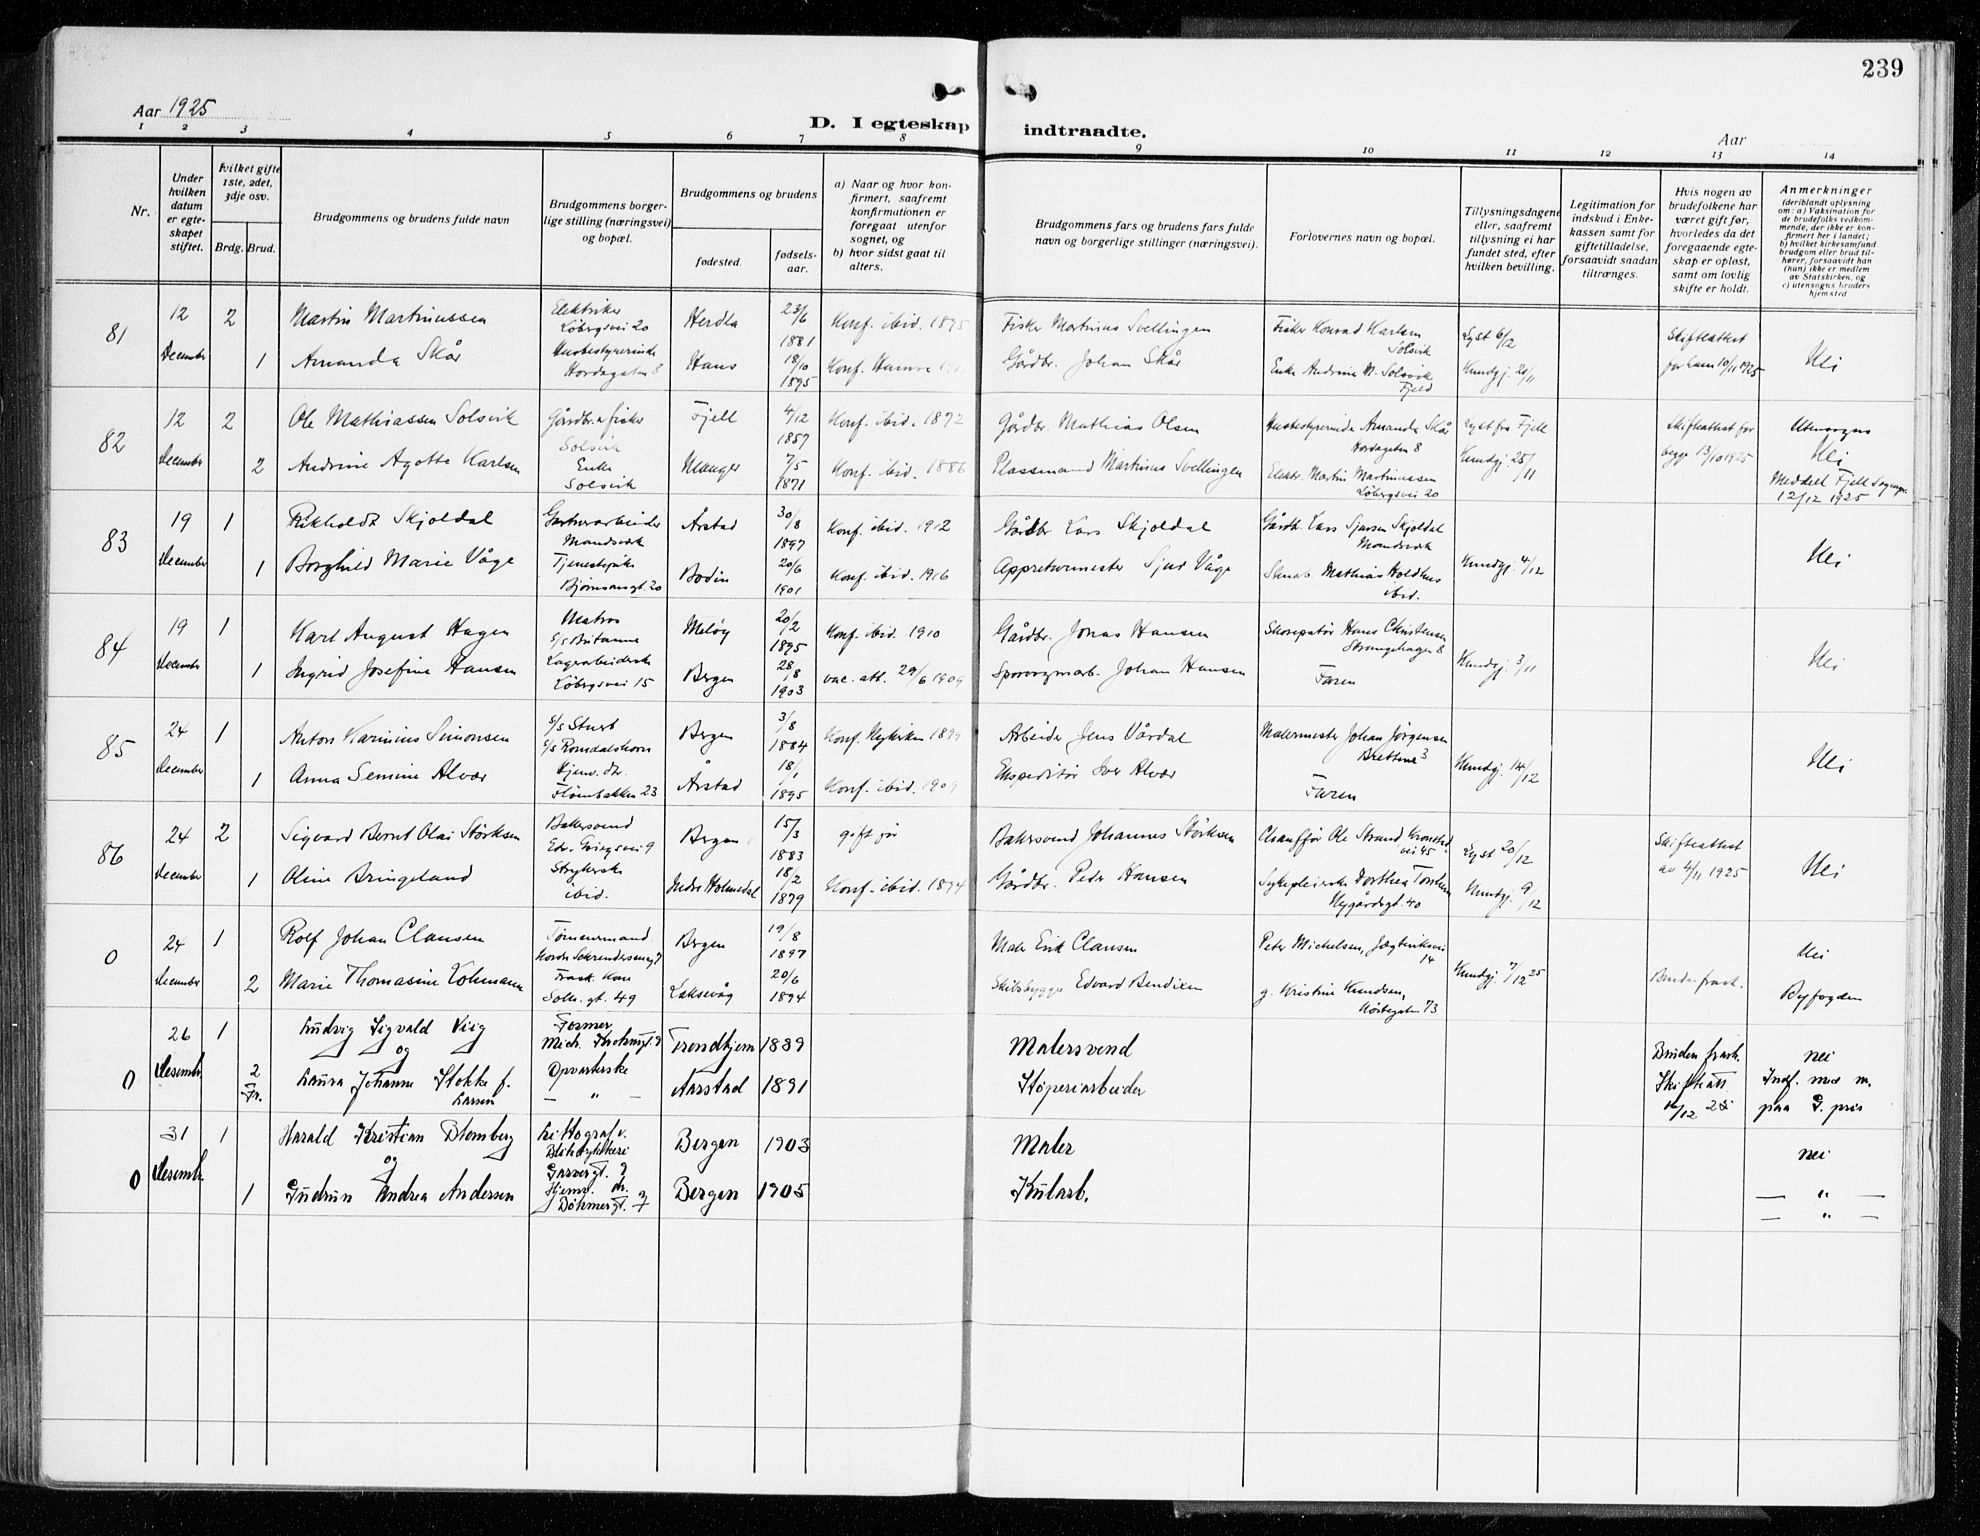 239
Aar 1925
D. I egteskap indtraadte.
Aar
1 2 3 4 5 6 7 8 9 10 11 12 13 14
Nr.
Under hvilken datum er egteskapet stiftet.
hvilket gifte 1ste, 2det, 3dje osv.
Brdg. Brud.
Brudgommens og brudens fulde navn
Brudgommens borgerlige stilling (næringsvei) og bopæl.
Brudgommens og brudens
fødested.
fødselsaar.
a) Naar og hvor konfirmert, saafremt konfirmationen er foregaat utenfor sognet, og
b) hvor sidst gaat til alters.
Brudgommens fars og brudens fars fulde navn og borgerlige stillinger (næringsvei).
Forlovernes navn og bopæl.
Tillysningsdagene eller, saafremt tillysning ei har fundet sted, efter hvilken bevilling.
Legitimation for indskud i Enkekassen samt for giftetilladelse, forsaavidt saadan tiltrænges.
Hvis nogen av brudefolkene har været gift før, hvorledes da det foregaaende egteskap er opløst, samt om lovlig skifte er holdt.
Anmerkninger
(deriblandt oplysning om: a) Vaksination for de brudefolks vedkommende, der ikke er konfirmert her i landet; b) hvilket kirkesamfund brudgom eller brud tilhører, forsaavidt han (hun) ikke er medlem av Statskirken, og c) utensogns bruders hjemsted
81 12 December 2 Martin Martinussen Elektriker Løbergsvei 20 Herdla 23/6 1881 Konf. ibid. 1895 Fisker Martinus Svellingen Fisker Konrad Karlsen Solsvik Lyst 6/12 Skifteattest
1 Amanda Skår Husbestyrerinde Hordagaten 8 Haus 18/10 1895 Konf. Hamre Gårdbr. Johan Skår Enke Andrine M. Solsvik Fjeld Kundgj. 20/11 for ham 10/11 1925 Nei
82 12 December 2 Ole Mathiassen Solsvik Gårdbr. & fisker Solsvik Fjell 4/12 1857 Konf. ibid. 1872 Gårdbr. Mathias Olsen Husbestyrerinde Amanda Skår Hordagaten 8 Lyst fra Fjell Skifteattest for Utensogns
2 Andrine Agotte Karlsen Enke Solsvik Manger 7/5 1871 Konf. ibid. 1886 Plassmand Martinus Svellingen Elektr. Martin Martinussen Løbergsvei 20 Kundgj. 25/11 begge 13/10 1925 Nei
Meddelt Fjell 12/12 1925
83 19 December 1 Rikholdt Skjoldal Gartnerarbeider Mandsverk Årstad 30/8 1897 Konf. ibid. 1912 Gårdbr. Lars Skjoldal Gårdb. Lars Sjursen Skjoldal Mandsverk
1 Borghild Marie Våge Tjenestepike Bjørnsonsgt. 20 Bodin 20/6 1901 Konf. ibid. 1916 Appreturmester Sjur Våge Mathias Holdhus ibid. Kundgj. 4/12 Nei
84 19 December 1 Karl August Hagen Matros s/s Britannic Meløy 20/2 1895 Konf. ibid. 1910 Gårdbr. Jonas Hansen Skorepatør Hans Christensen Strangehagen 8
1 Ingrid Josefine Hansen Lagerarbeiderske Løbergsvei 15 Bergen 28/8 1903 vac. att. 29/6 1909 Sporvognsarb. Johan Hansen Faren Kundgj. 3/11 Nei
85 24 December 1 Anton Marinius Simonsen s/s Romsdalshorn Bergen 3/8 1884 Konf. Nykirken Arbeider Jens Vårdal Malermester Johan Jørgensen 3
1 Anna Semine Alvær Hjemv. dtr. Fløenbakken 23 Årstad 18/1 1895 Konf. ibid. 1909 Ekspeditør Iver Alvær Faren Kundgj. 14/12 Nei
86 24 December 2 Sigvard Bernt Olai Størksen Bakersvend Edv. Griegsvei 9 Bergen 15/3 1883 gift før Bakersvend Johannes Størksen Chauffør Ole Strand Kronstadvei 45 Lyst 20/12 Skifteattest
1 Oline Bringeland Strykerske ibid. Indre Holmedal 18/2 1879 Konf. ibid. 1894 Gårdbr. Peder Hansen Sykepleierske Dorthea Nygårdsgt. 40 Kundgj. 9/12 av 4/11 1925 Nei
0 24 December 1 Rolf Johan Clausen Tømmermand Bergen 19/8 1897 Maler Erik Clausen Peter Michelsen, 14 Nei
2 Marie Thomasine Lohmann Frask. kone Solh. gt. 49 Laksevåg 20/6 1894 Skibsbygger Edvard Bendixen g. Kristine Knudsen, 73 Kundgj. 7/12 25 Bruden frask. Byfogden
0 26 Desembr. 1 Ludvig Sigvald Viig Former Mich. Krohnsgt. Trondhjem 1889 Malersvend Bruden frask. nei
og
2 Fr. Laura Johanne Stokke f. Larsen Opvarterske — " — Aarstad 1891 Støperiarbeider Skifteatt. 16/12 25 Indf. med m. paa S. pris
0 31 Desembr. 1 Harald Kristian Blomberg Littograf v. Bliktrykkeri Bergen 1903 Maler nei
og
1 Gudrun Andrea Andersen Hjemv. dr. Døhmergt. 7 Bergen 1905 Kularb. — " —
— " —